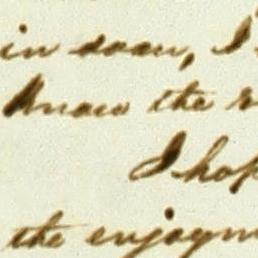 in soon, I
Know the
I hop
the enjoym